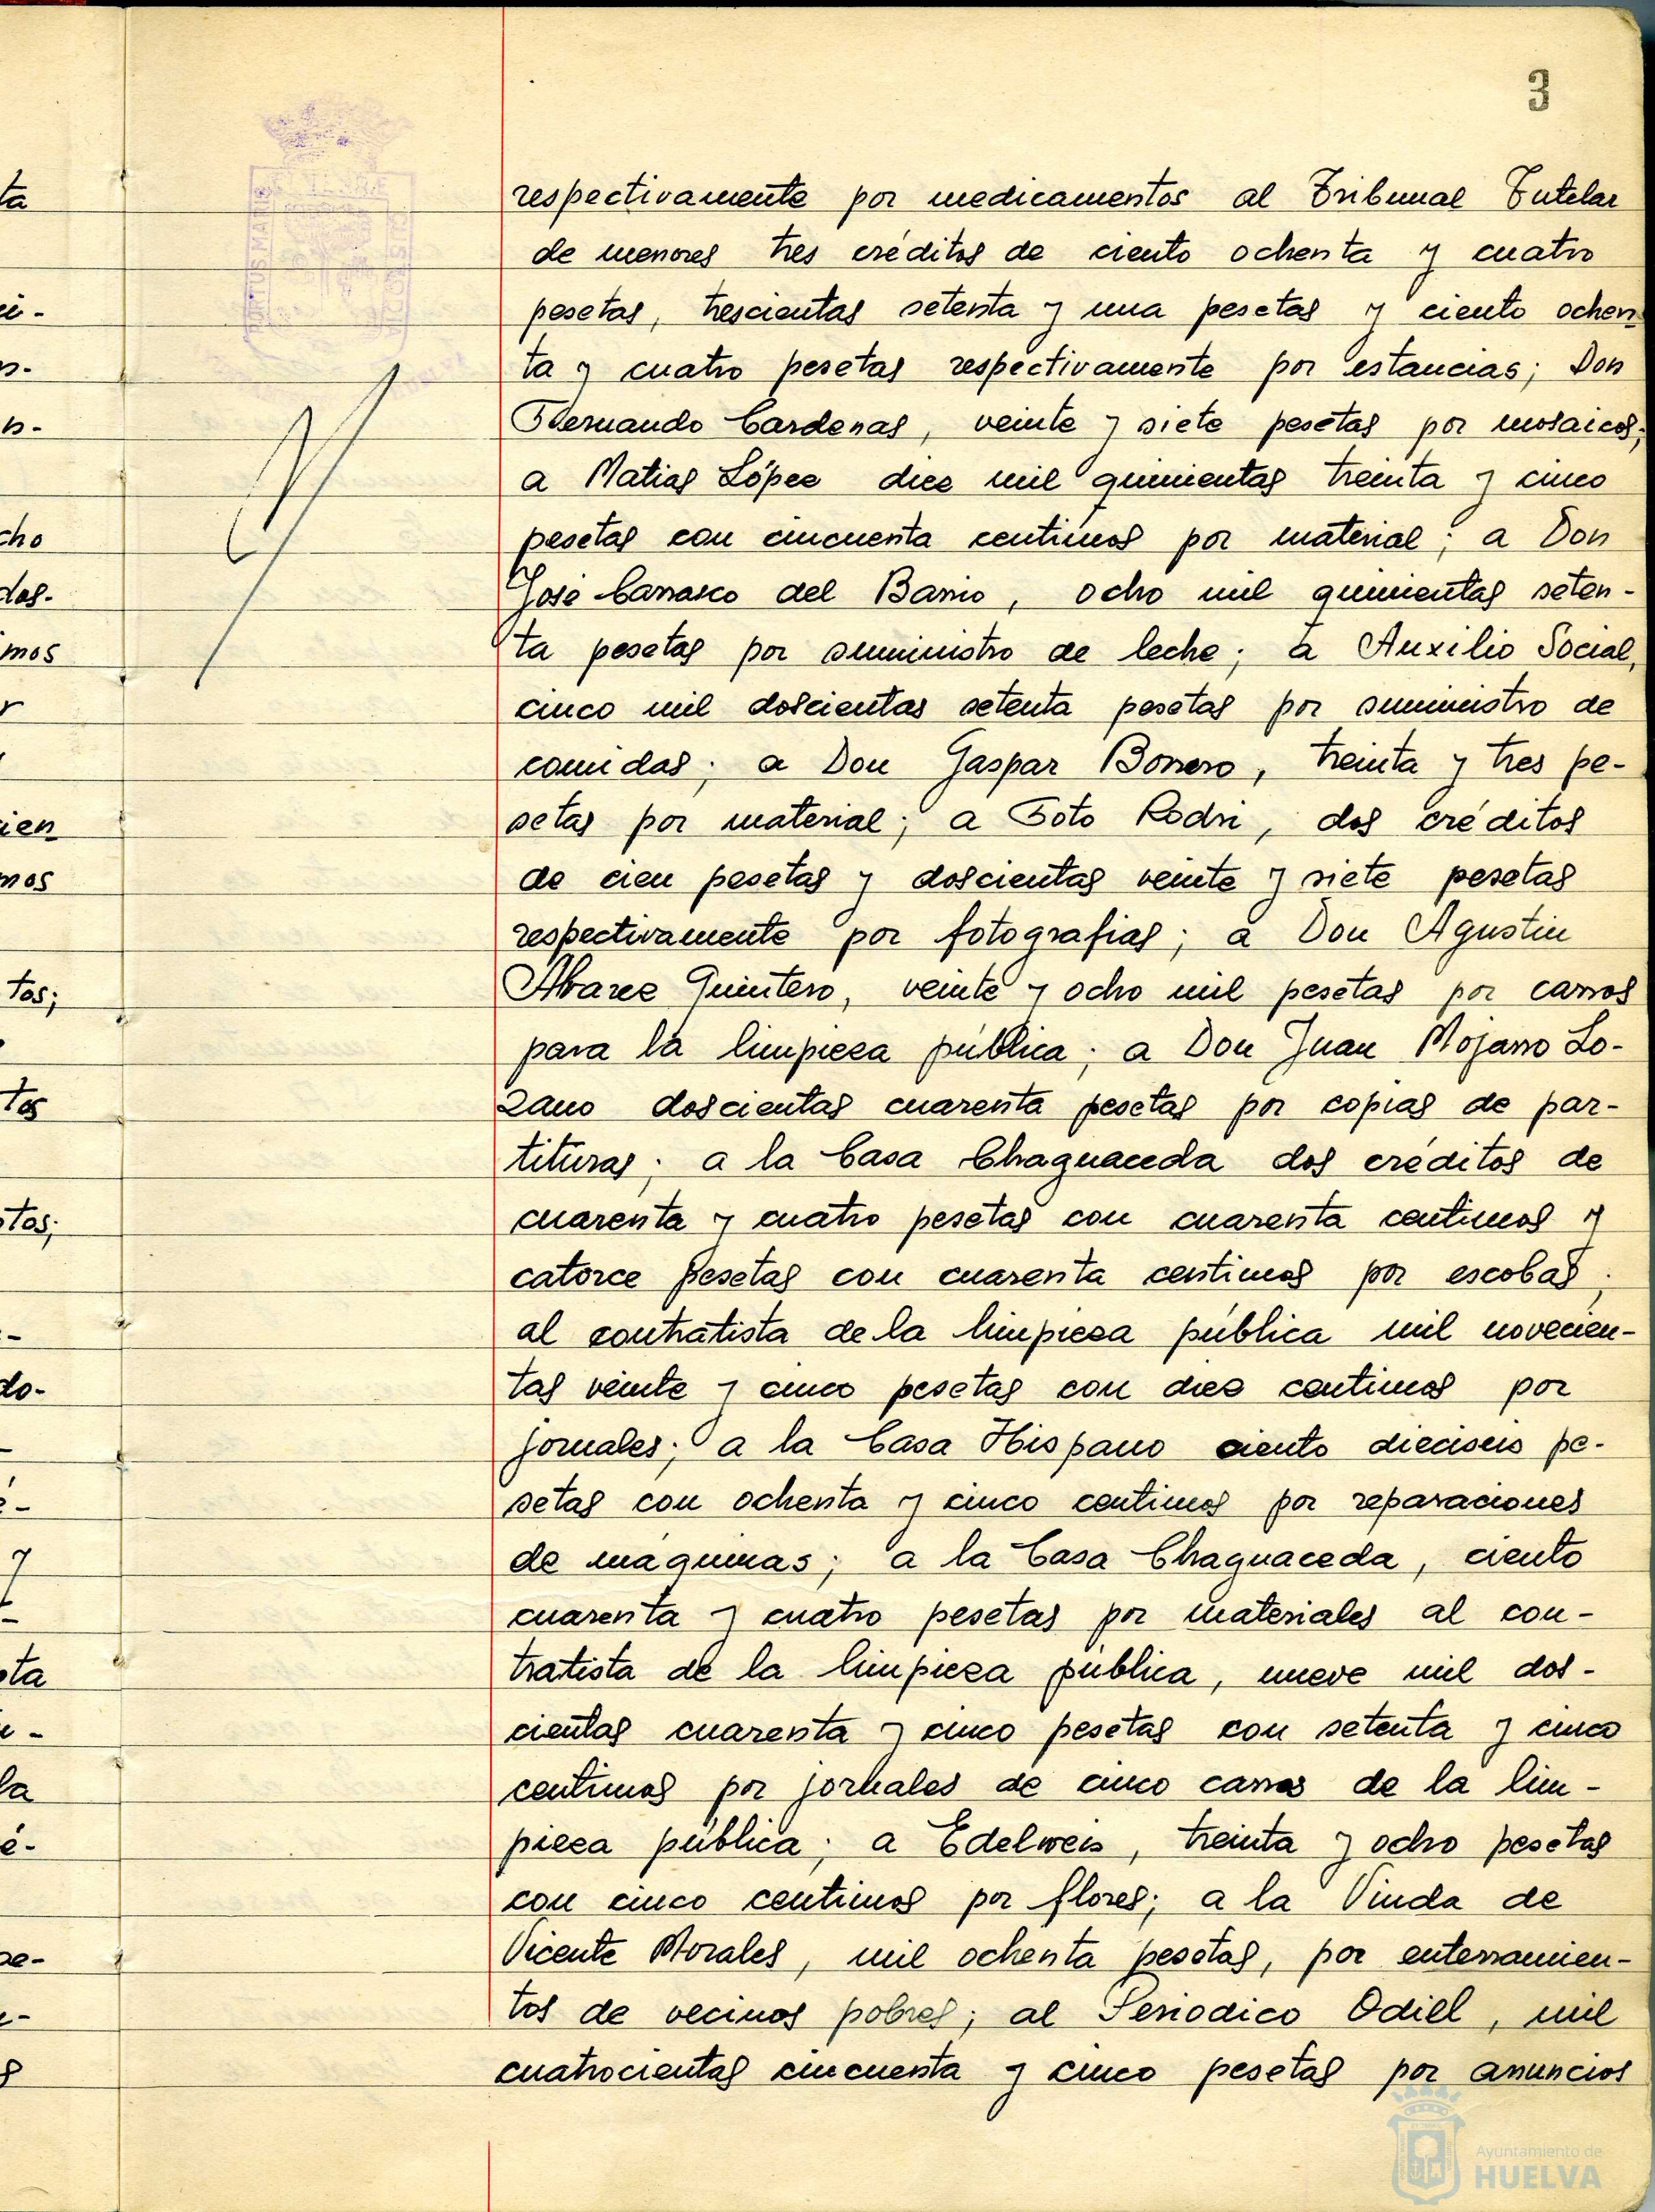 3
respectivamente por medicamentos al Tribunal Tutelar
de menores tres créditos de ciento ochenta y cuatro
pesetas, trescientas setenta y una pesetas y ciento ochen
ta y cuatro pesetas respectivamente por estancias; Don
Fernando Cardenas, veinte y siete pesetas por mosaicos;
a Matias López diez mil quinientas treinta y cinco
pesetas con cincuenta centimos por material; a Don
José Carrasco del Barrio, ocho mil quinientas seten-
ta pesetas por suministro de leche; a Auxilio Social,
cinco mil doscientas setenta pesetas por suministro de
comidas; a Don Gaspar Borrero, treinta y tres pe-
setas por material; a Foto Rodri, dos créditos
de cien pesetas y doscientas veinte y siete pesetas
respectivamente por fotografias; a Don Agustin
Alvarez Quintero, veinte y ocho mil pesetas por carros
para la limpieza pública; a Don Juan Mojarro Lo-
zano doscientas cuarenta pesetas por copias de par-
tituras; a la Casa Chaguaceda dos créditos de
cuarenta y cuatro pesetas con cuarenta centimos y
catorce pesetas con cuarenta centimos por escobas;
al contratista de la limpieza pública mil novecien-
tas veinte y cinco pesetas con diez centimos por
jornales; a la Casa Hispano ciento dieciseis pe-
setas con ochenta y cinco centimos por reparaciones
de máquinas; a la Casa Chaguaceda, ciento
cuarenta y cuatro pesetas por materiales al con-
tratista de la limpieza pública, nueve mil dos-
cientas cuarenta y cinco pesetas con setenta y cinco
centimos por jornales de cinco carros de la lim-
pieza pública; a Edelweis, treinta y ocho pesetas
con cinco centimos por flores; a la Viuda de
Vicente Morales, mil ochenta pesetas, por enterramien-
tos de vecinos pobres; al Periodico Odiel, mil
cuatrocientas cincuenta y cinco pesetas por anuncios
PORTUS MARIS
CUSTODIA
ta
ci-
n-
n-
cho
das-
imos
r
cien
mos
tos;
tos
tos;
do-
é-
y
ta
la
é-
pe-
Ayuntamiento de
HUELVA